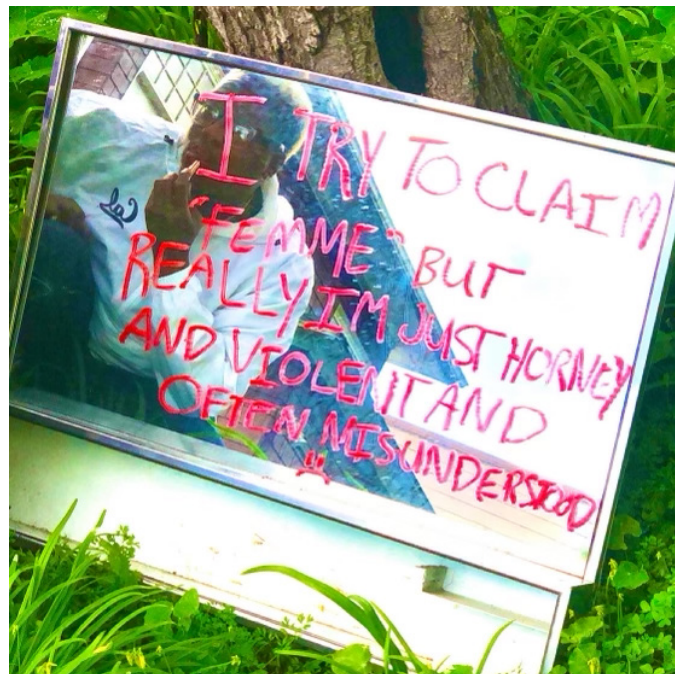 I TRY TO CLAIM
"FEMME" BUT
REALLY I'M JUST HORNEY
AND VIOLENT AND
OFTEN MISUNDERSTOOD
!!